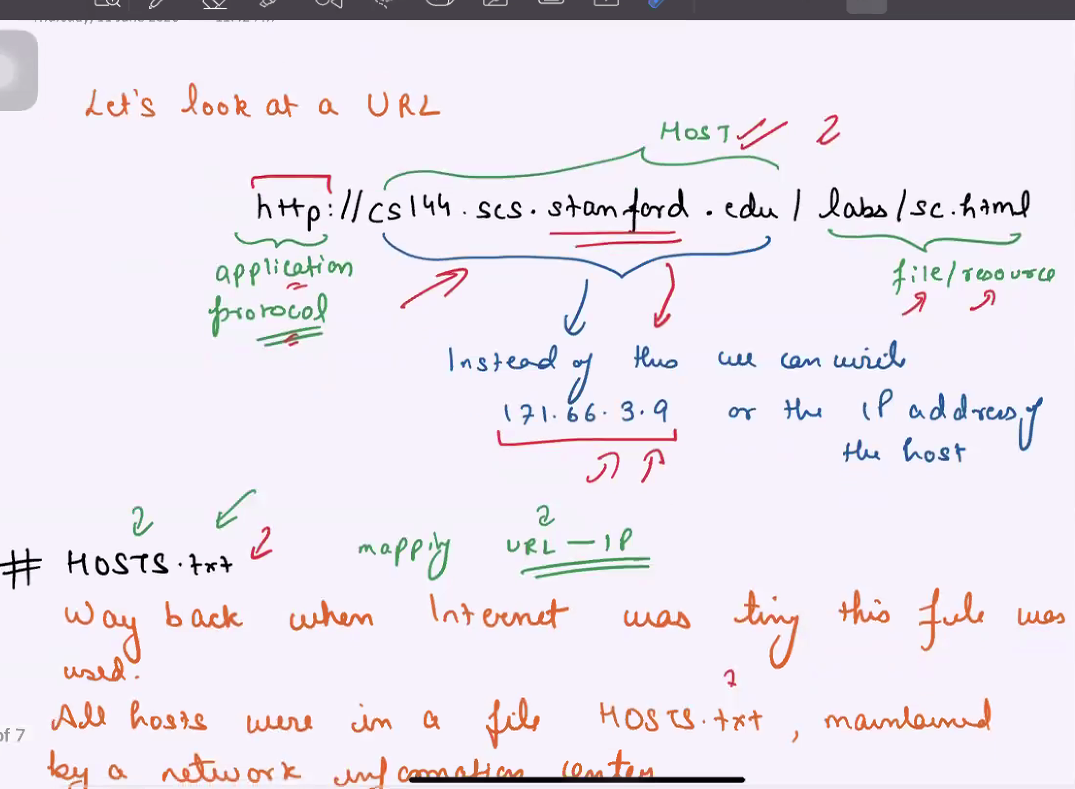 Let's look at a URL
HOST
http://cs144.scs.stanford.edu/labs/sc.html
application
protocol
file/resource
Instead of this we can write
171.66.3.9 or the IP address of
the host
# HOSTS.txt mapping URL - IP
Way back when Internet was tiny this file was
used.
All hosts were in a file HOSTS.txt, maintained
of 7
by a network information center